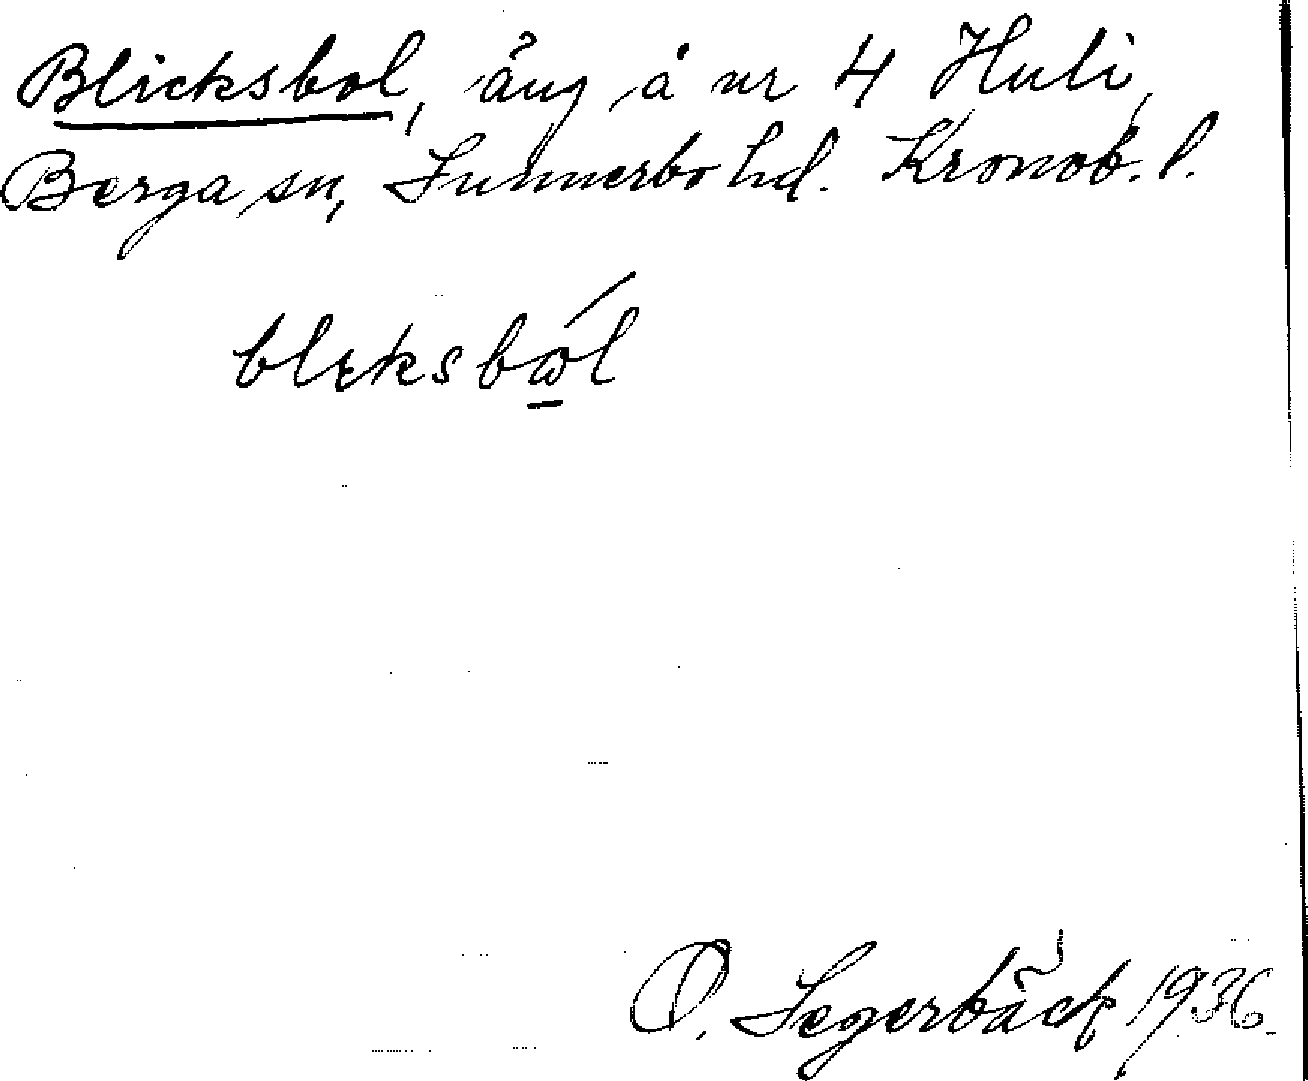 Blicksbol, äng å nr 4 Huli,
Berga sn, Sunnerbo hd. Kronob. l.
blɛksbωĺ
O. Segerbäck 1936.